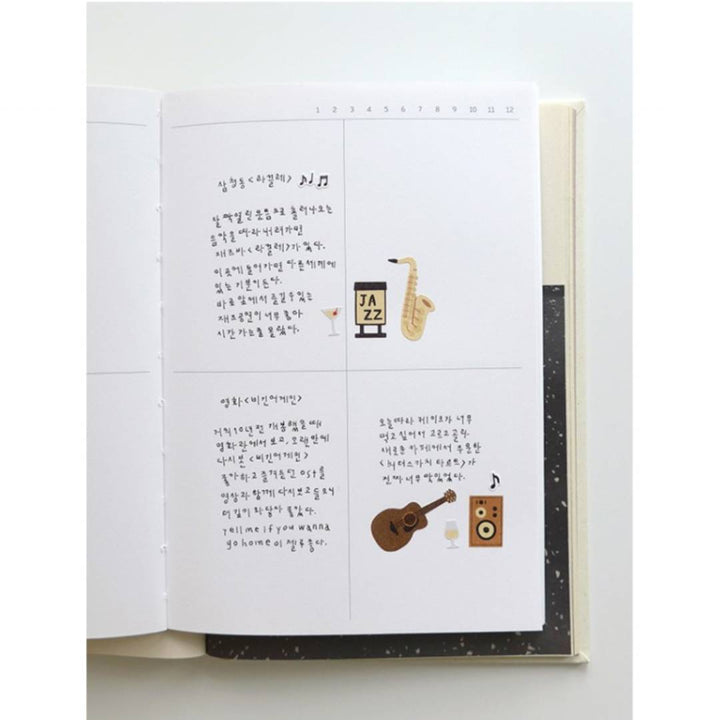 1 2 3 4 5 6 7 8 9 10 11 12
삼청동 <라 >
살짝 열린 문틈으로 흘러나오는
음악을 따라 내려가면
재즈바 < >가 있다.
이곳에 들어가면 다른 세계에
있는 기분이 든다.
바로 앞에서 즐길 수 있는
재즈공연이 너무 좋아
시간 가는줄 몰랐다.
JA
ZZ
영화 <비긴어게인>
거의 10년전 개봉했을 때
영화관에서 보고, 오랜만에
다시 본 <비긴어게인>
좋아하고 즐겨듣던 ost를
영상과 함께 다시 보고 들으니
더 깊이 와닿아 좋았다.
tell me if you wanna
go home이 젤루 좋다.
오늘따라 케이크가 너무
먹고싶어서 고르고 골라
새로운 카페에서 주문한
타르트>가
진짜 너무 맛있었다.